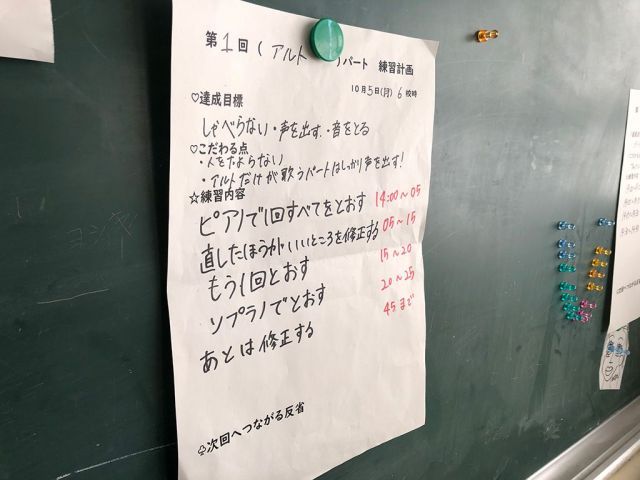 第1回(アルト)パート 練習計画
10月5日(月)6校時
♡達成目標
しゃべらない・声を出す・音をとる
♡こだわる点
・人をたよらない
・アルトだけが歌うパートはしっかり声を出す!
☆練習内容
ピアノで1回すべてをとおす 14:00〜05
直したほうがいいところを修正する 05〜15
もう1回とおす 15〜20
ソプラノでとおす 20〜25
あとは修正する 45まで
♧次回へつながる反省